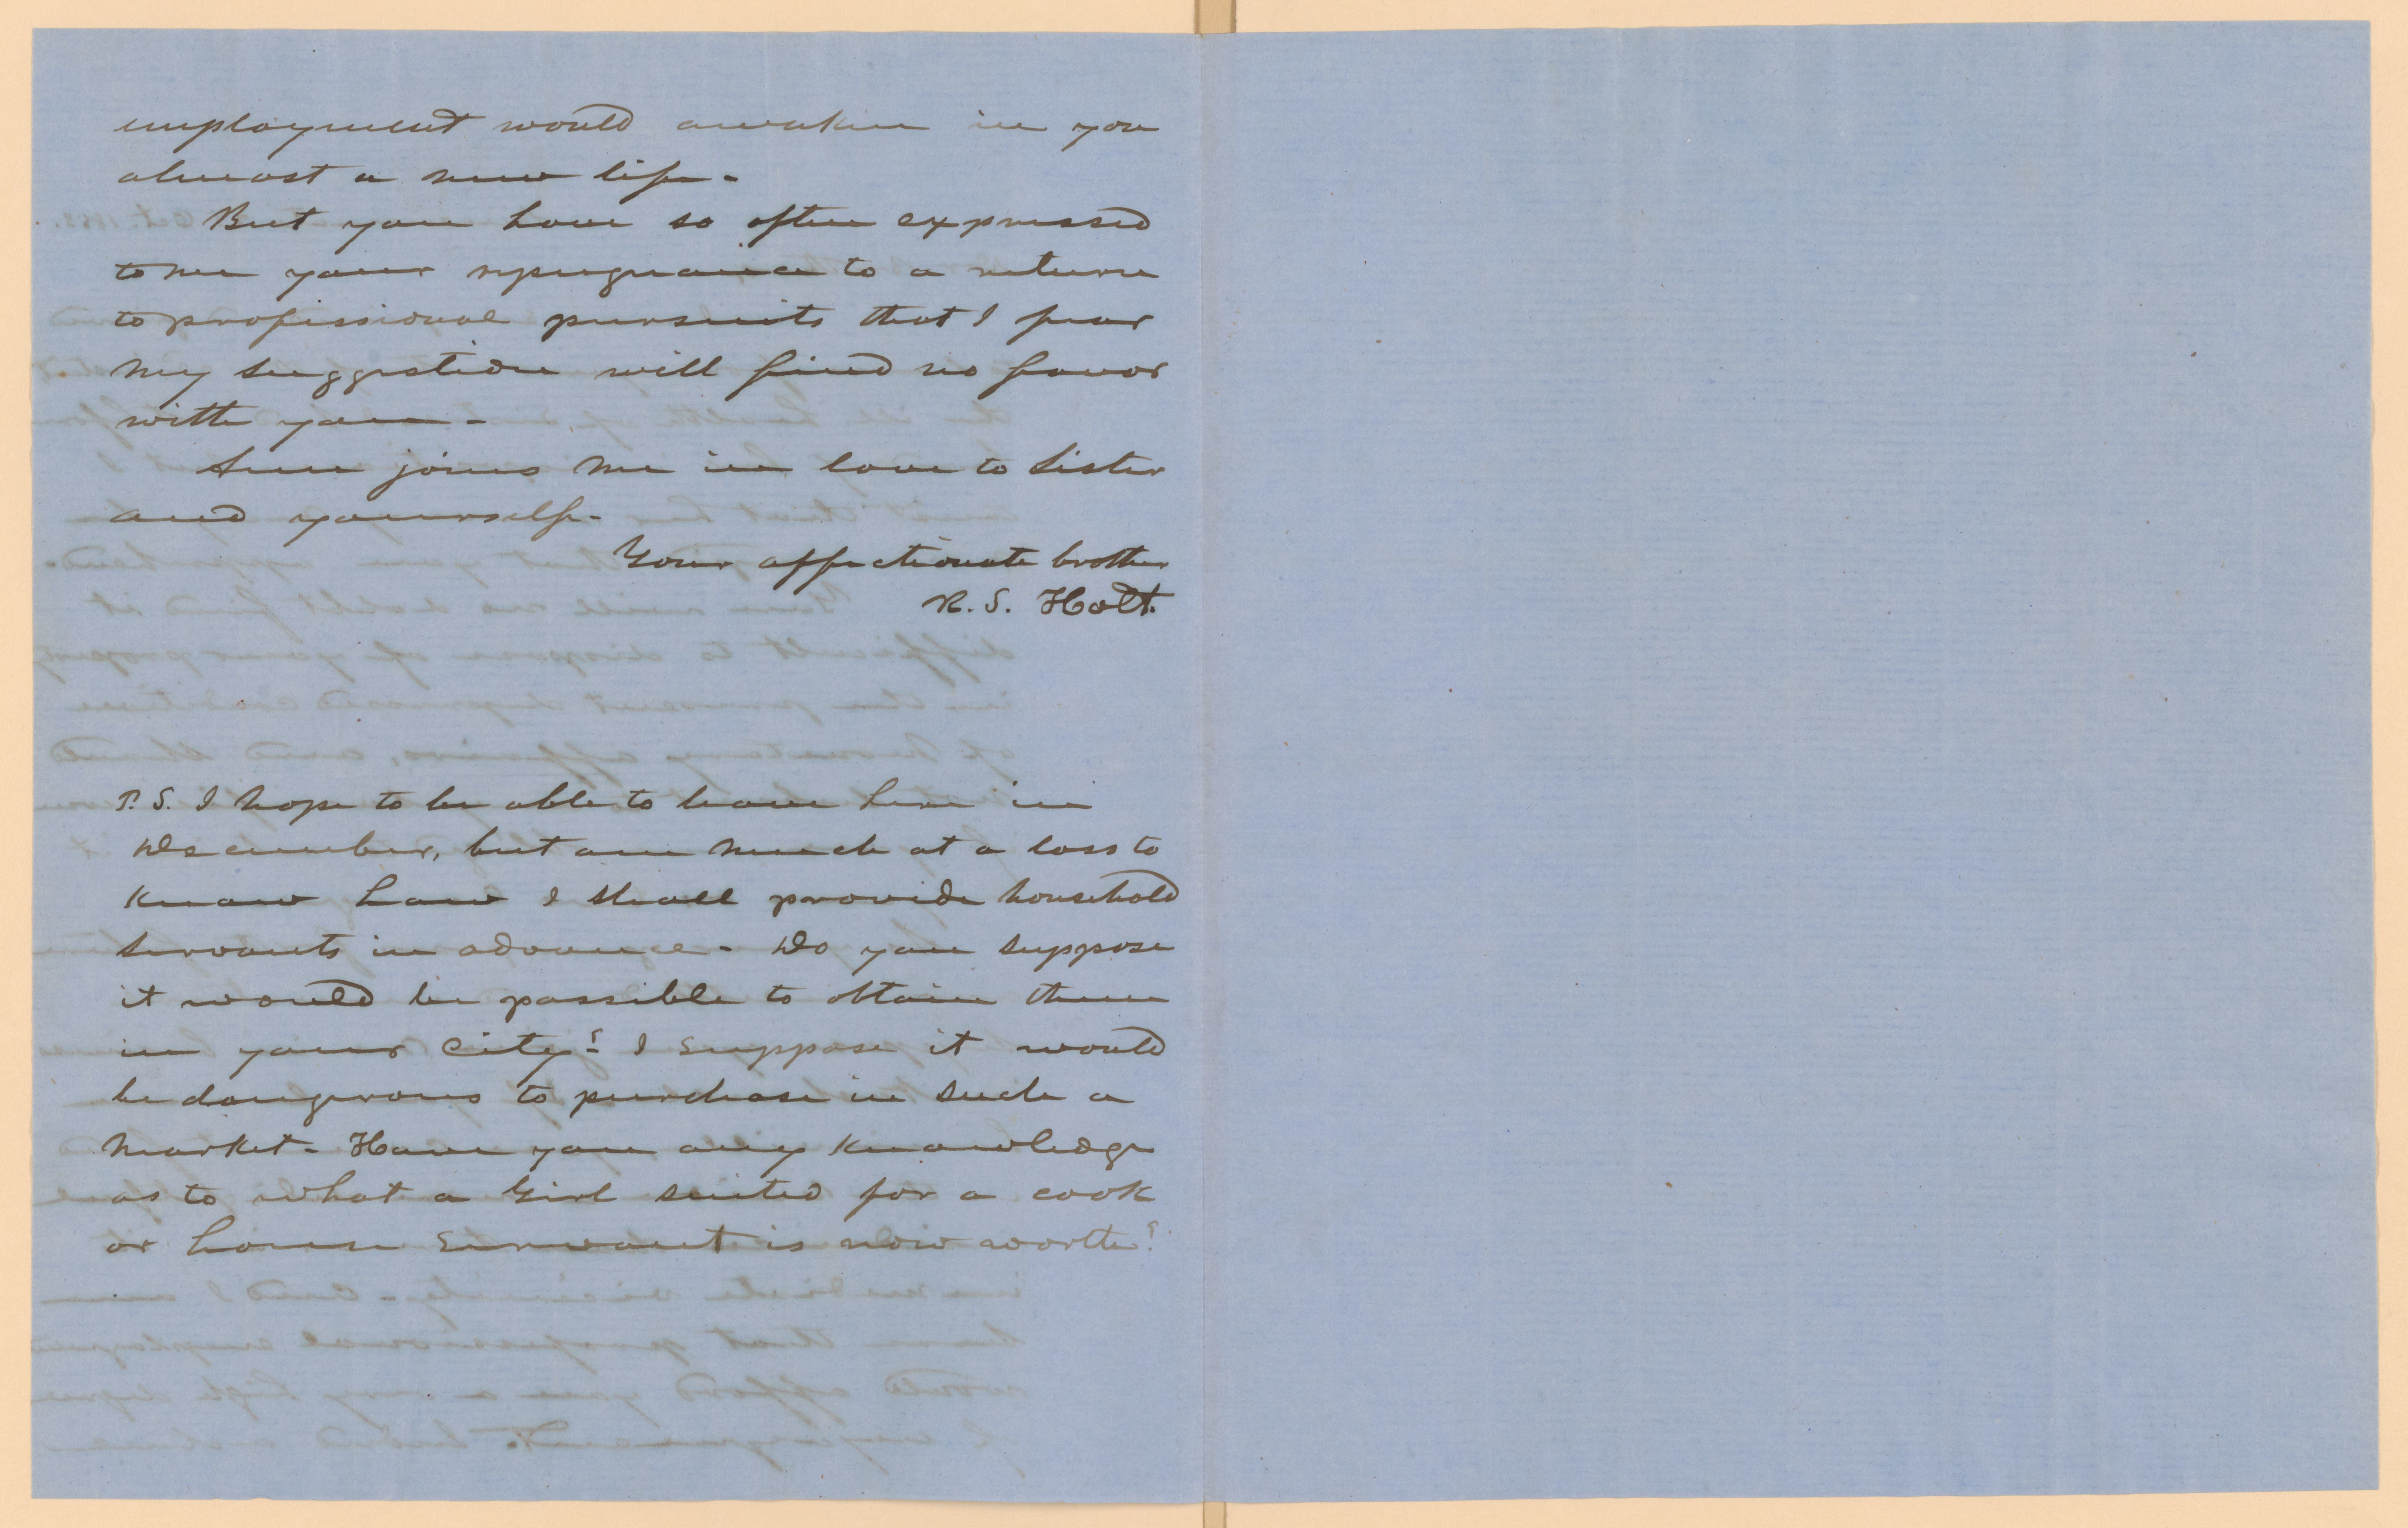 employment would awaken in you
almost a new life-
But you have so often expressed
to me your repugnance to a return
to professional pursuits that I fear
my suggestion will find no favor
with you-
Ann joins me in love to Sister
and yourself-
Your affectionate brother
R. S. Holt.
P.S. I hope to be able to leave here in
December, but am much at a loss to
know how I shall provide household
servants in advance- Do you suppose
it would be possible to obtain them
in your City? I suppose it would
be dangerous to purchase in such a
market- Have you any knowledge
as to what a Girl suited for a cook
or house servant is now worth?